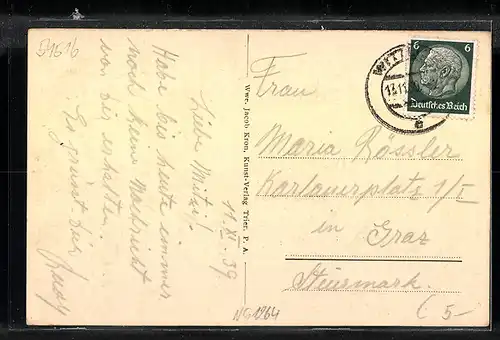 S1516
Liebe Mitzi!
11. XI. 39
Habe bis heute immer
noch keine Nachricht
von dir erhalten.
Es grüsst dich
Wwe. Jacob Kron, Kunst-Verlag Trier. P. A.
6 6
Deutsches Reich
WITT
e
Frau
Maria Rössler
Karlauerplatz 1/I
in Graz
Steiermark.
NG1264
(5-